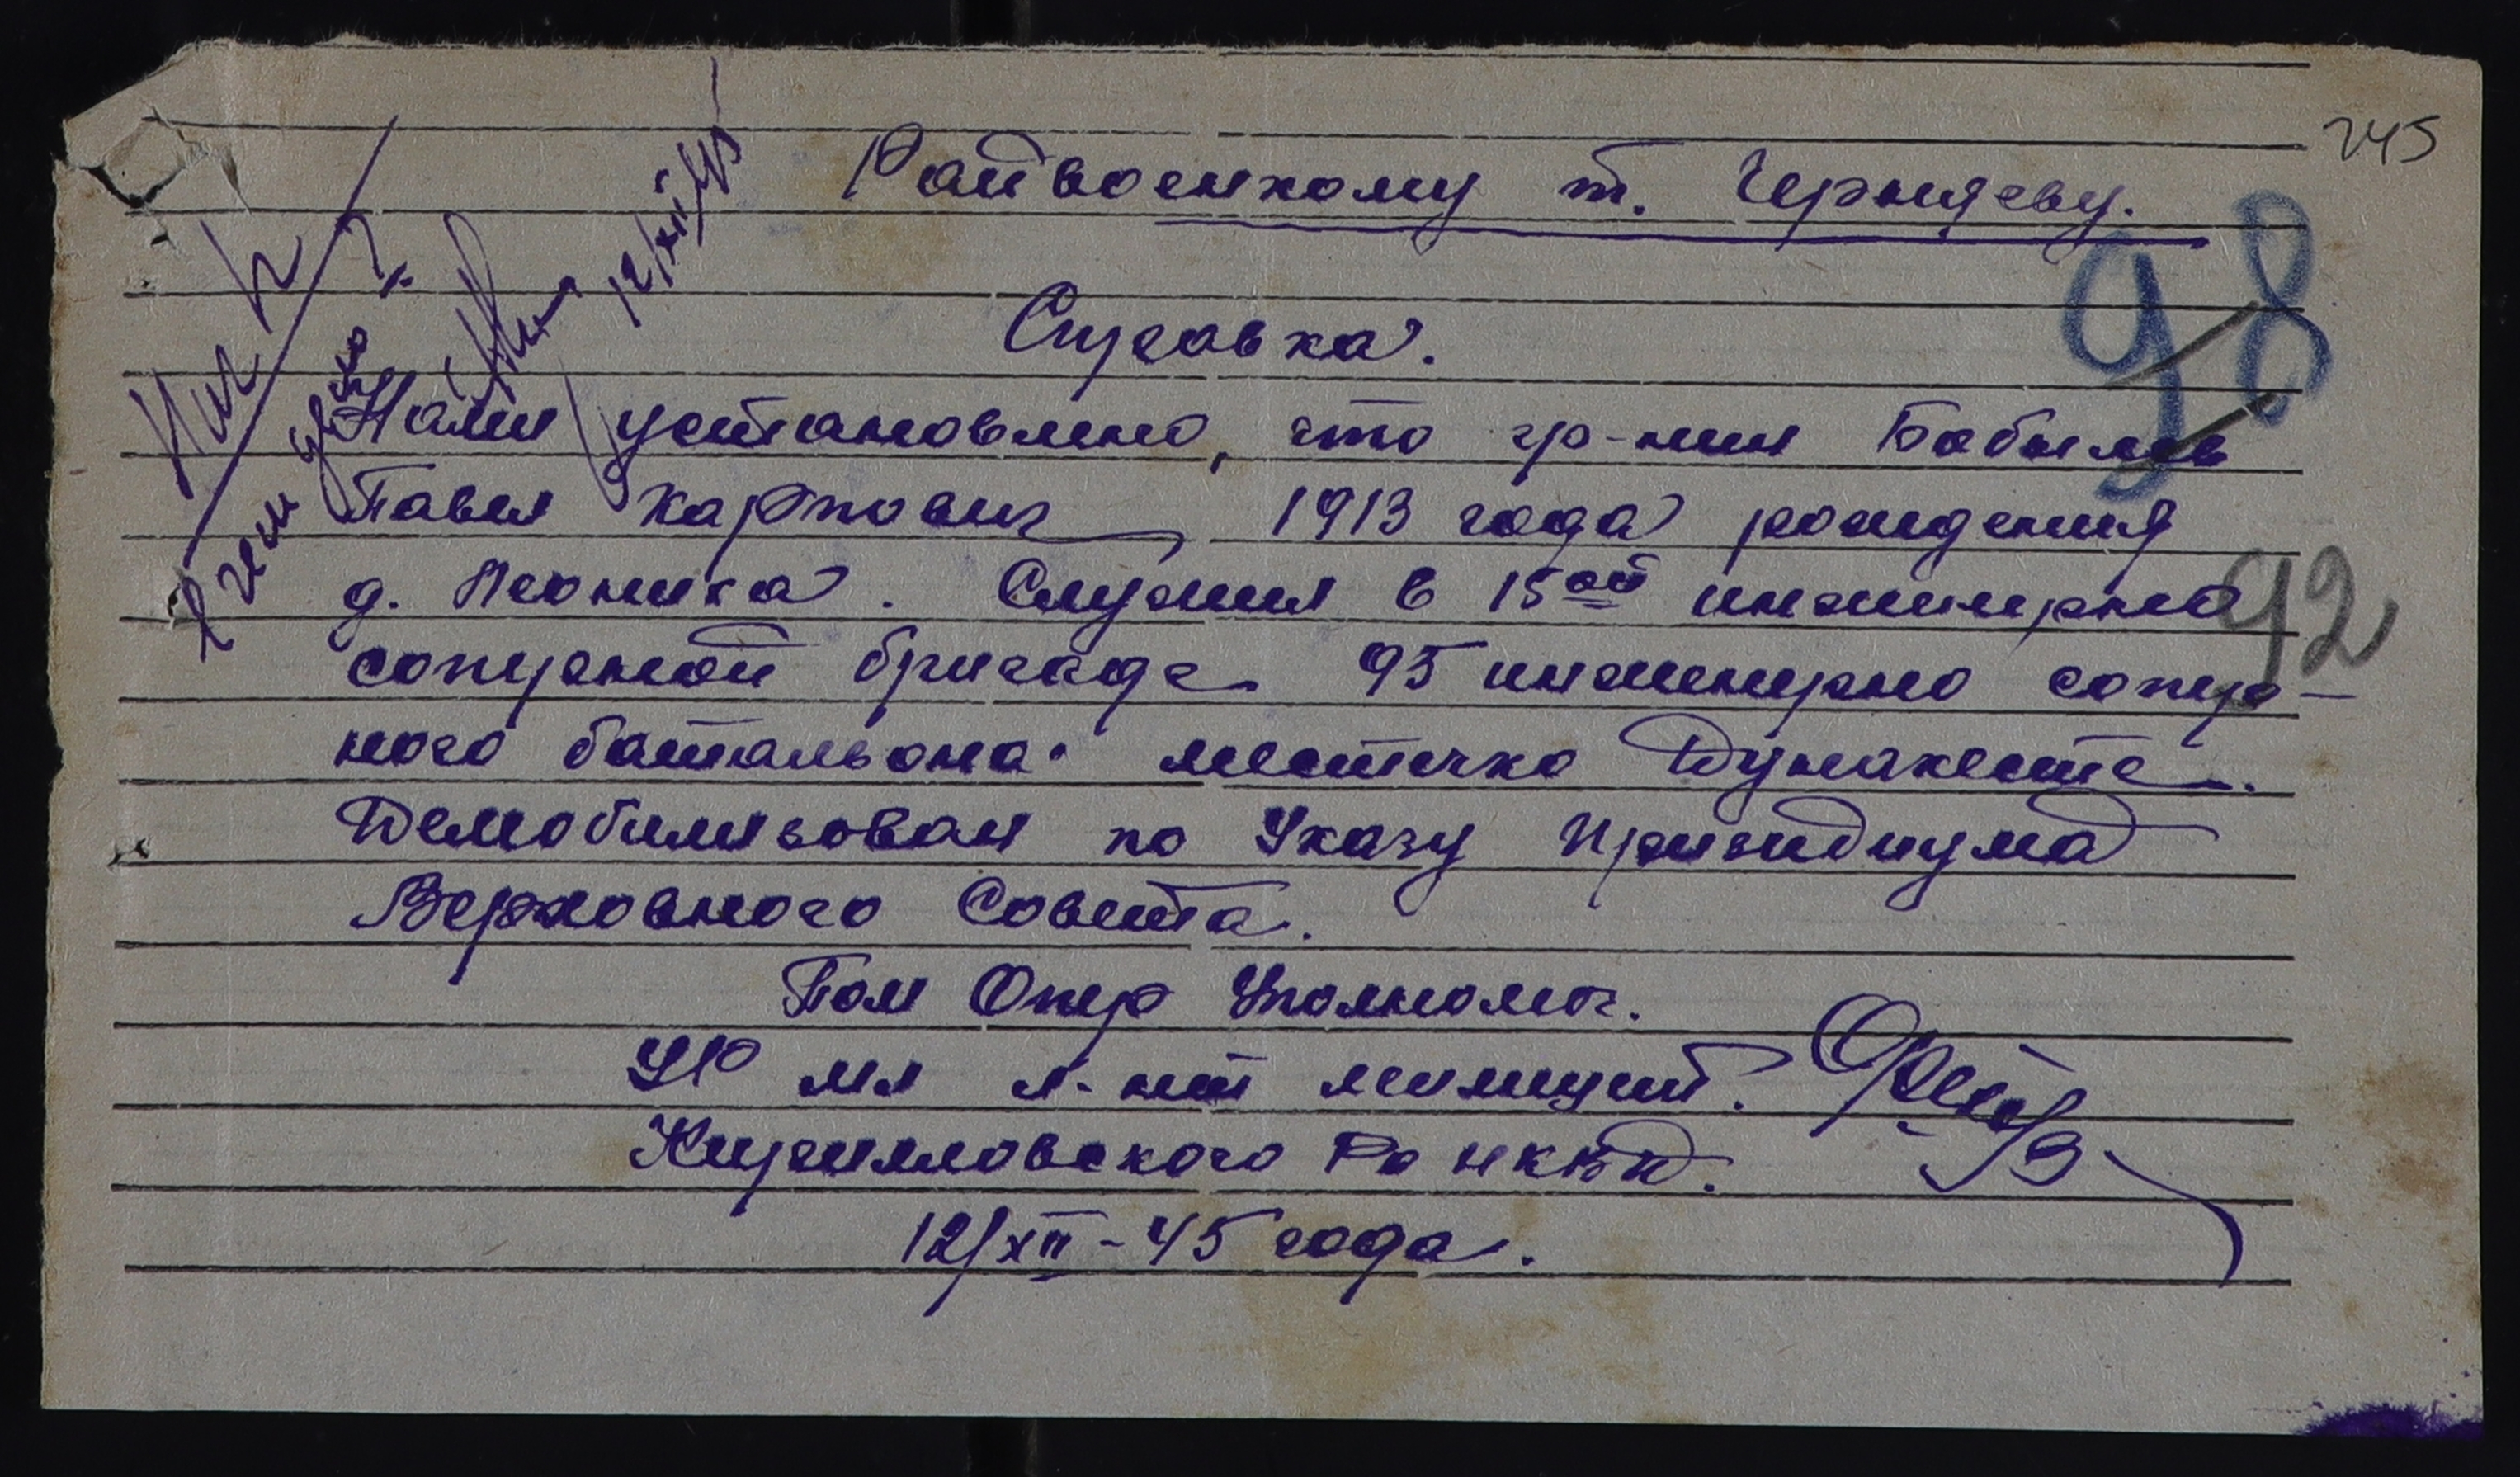 245
Райвоенкому т. Черняеву.
98
Справка.
12/XII/45
Нами установлено, что гр-нин Бобылев
Павел Карпович, 1913 года рождения
д. Ионинка. Служил в 15ой инженерно
92
саперной бригаде 95 инженерно сапер-
ного батальона. местечко Дунакесте.
Демобилизован по Указу Призидиума
Верховного Совета.
Пом Опер Уполномоч.
УР мл л-нт милиций.
Кирилловского Ро НКВД.
12/XII-45 года.